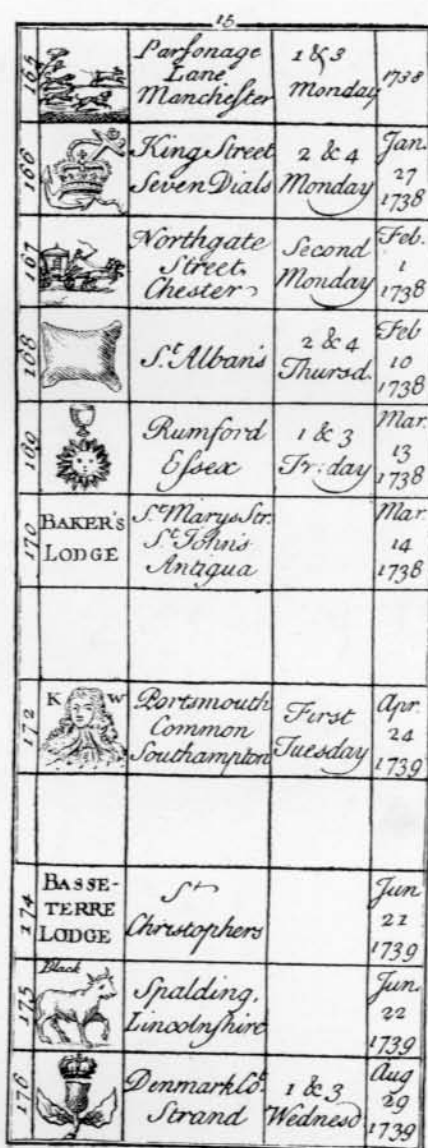 15
165
Parsonage
Lane
Manchester
1 & 3
Monday
1738
166
King Street
Seven Dials
2 & 4
Monday
Jan.
27
1738
167
Northgate
Street,
Chester
Second
Monday
Feb.
1
1738
168
St. Alban's
2 & 4
Thursd.
Feb
10
1738
169
Rumford
Essex
1 & 3
Friday
Mar.
13
1738
170
BAKER'S
LODGE
St. Marys Str.
St. John's
Antigua
Mar.
14
1738
172
K W
Portsmouth
Common
Southampton
First
Tuesday
Apr.
24
1739
174
BASSE-
TERRE
LODGE
St.
Christophers
Jun
21
1739
175
Black
Spalding,
Lincolnshire
Jun.
22
1739
176
Denmark Co.t
Strand
1 & 3
Wednesd
Aug
29
1739